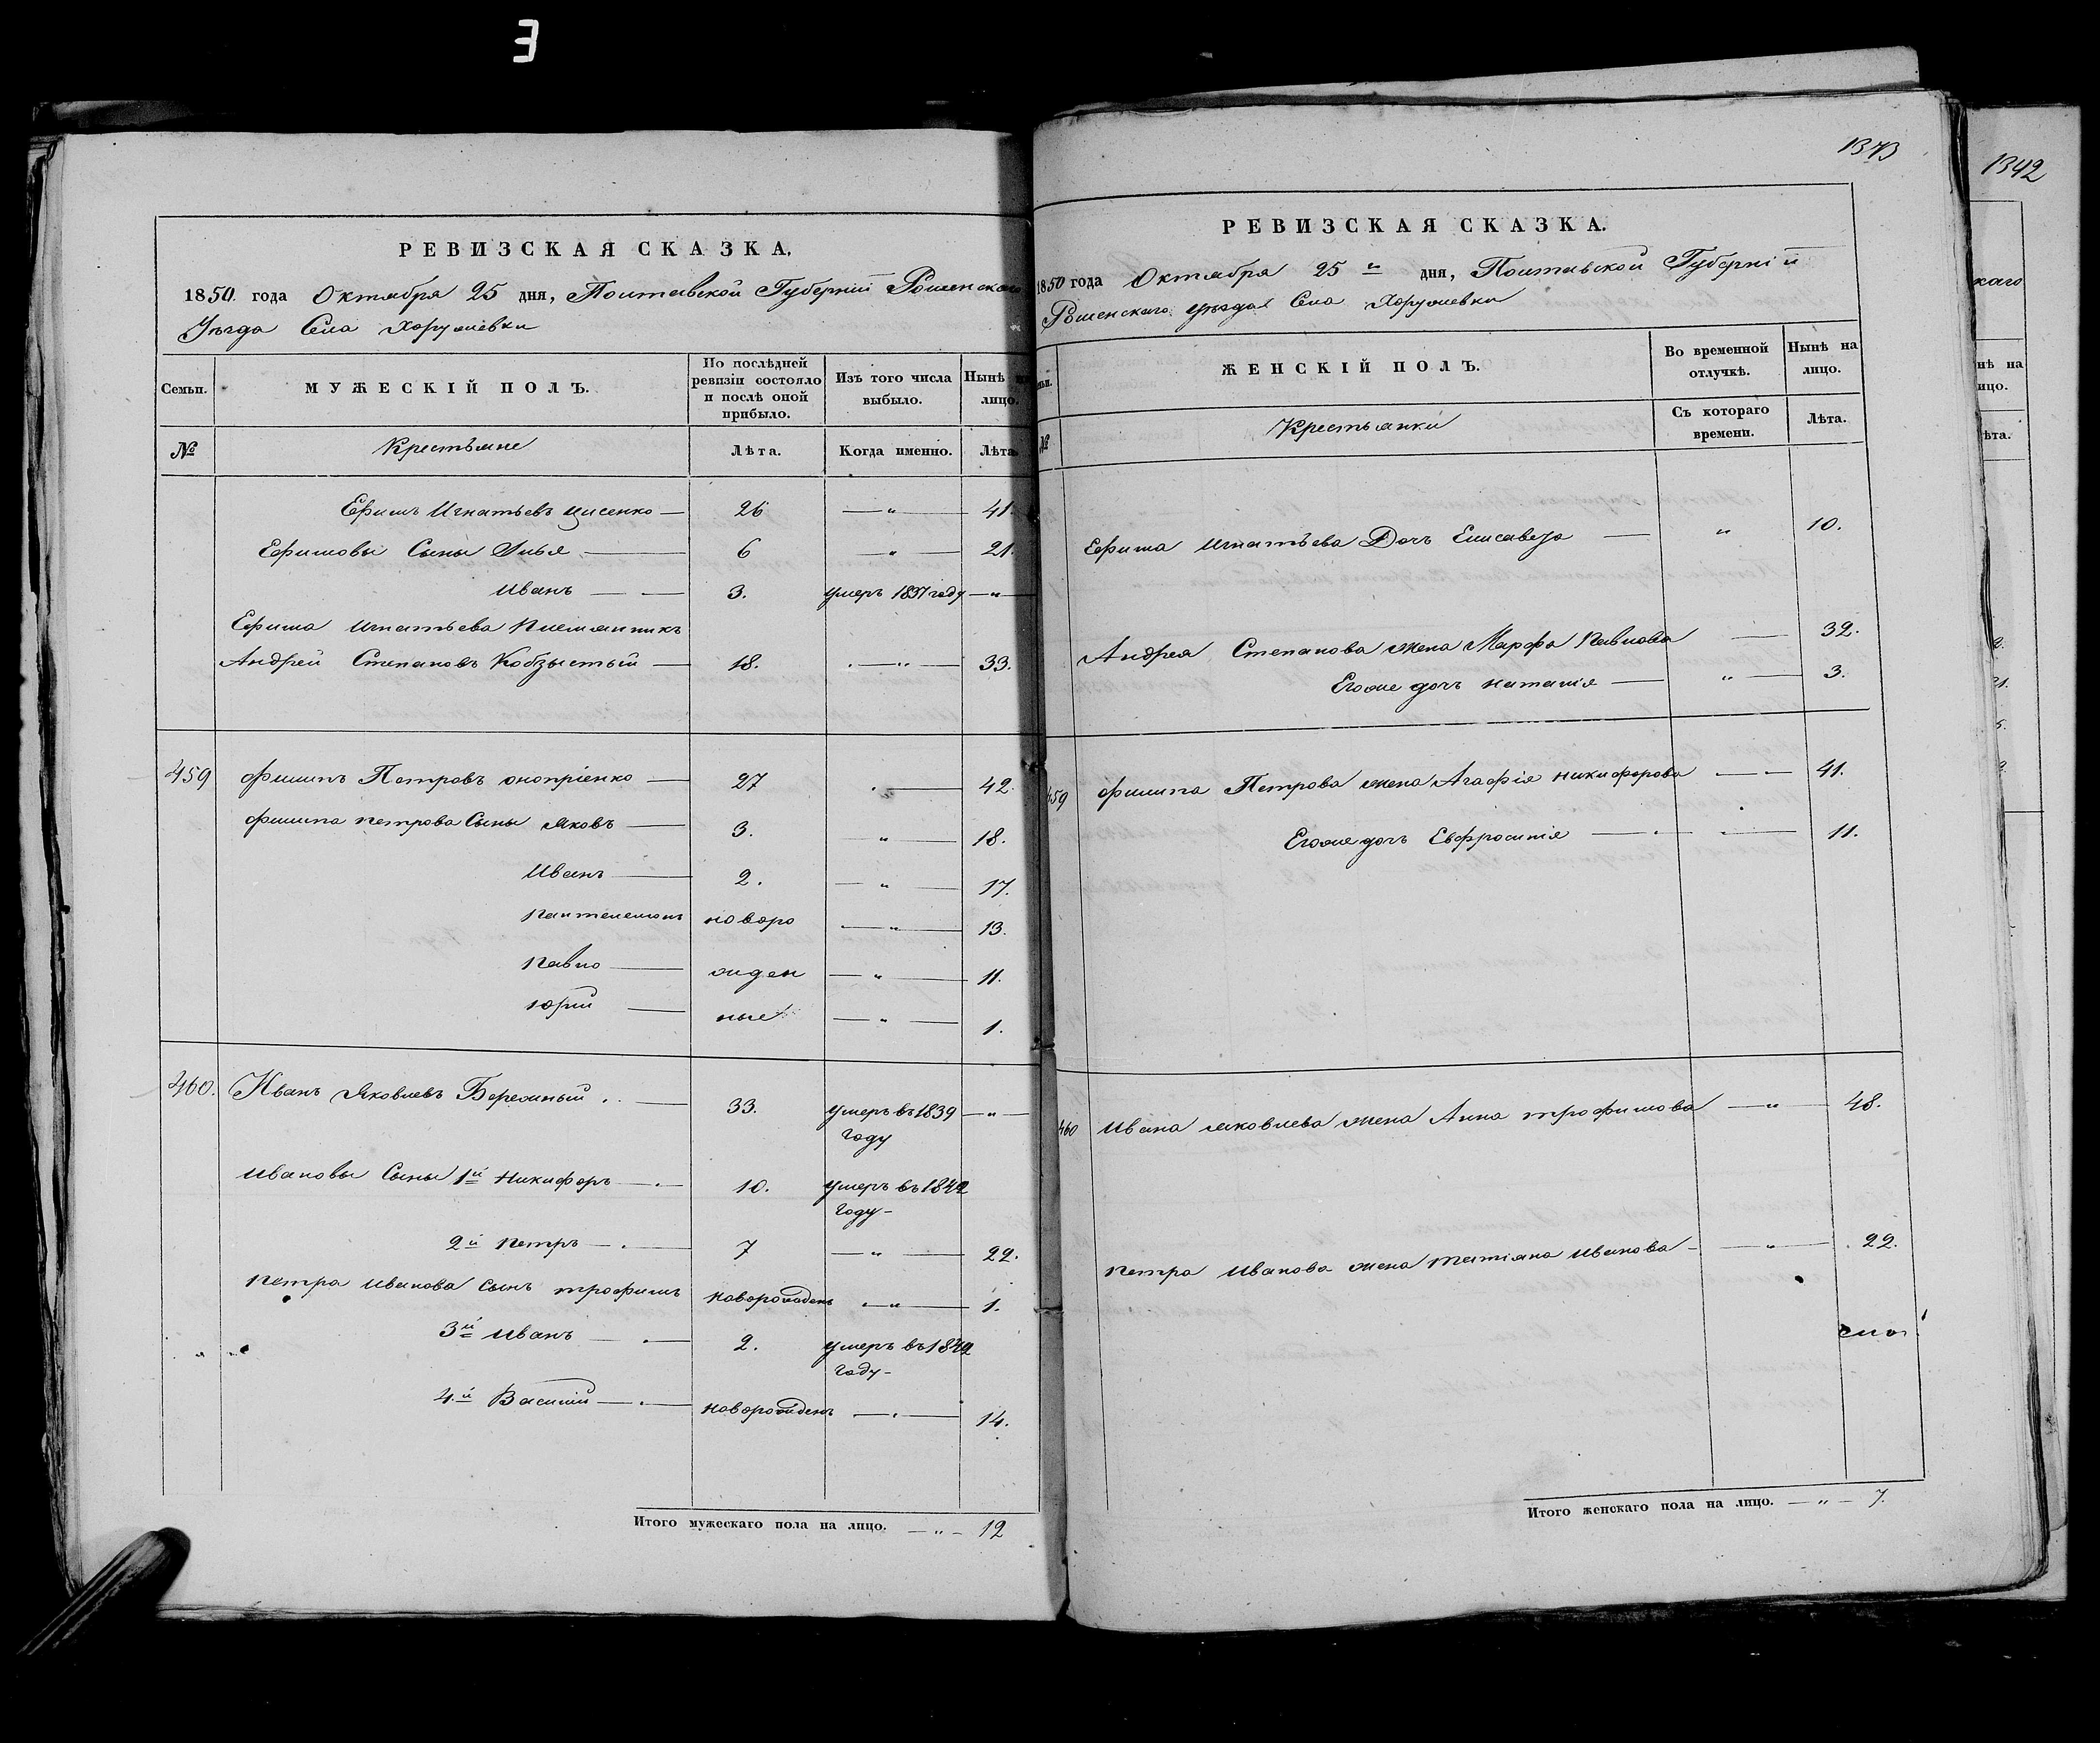 1373
1342
РЕВИЗСКАЯ СКАЗКА.
1850 года Октября 25 дня, Полтавской Губерніи Роменскаго
Уѣзда Села Хоружевки
Семьи. МУЖЕСКІЙ ПОЛЪ. По послѣдней ревизіи состояло и послѣ оной прибыло. Изъ того числа выбыло. Нынѣ на лицо.
№ Крестьяне Лѣта. Когда именно. Лѣта.
Ефимъ Игнатьевъ — 26 — " — 41.
Ефимовы Сыны Илья — 6 — " — 21.
Иванъ — — 3. умеръ 1837 году — " —
Ефима Игнатьева Племянникъ
Андрей Степановъ Кобзыстый — 18. — " — 33.
459 Филипъ Петровъ Оноприенко — 27 — 42.
Филипа Петрова Сыны Яковъ — 3. " — 18.
Иванъ — 2. — " — 17.
Пантелемонъ новоро — " — 13.
Павло — жден — " — 11.
Юрій — ные — " — 1.
460. Иванъ Яковлевъ Бережный — 33. умеръ въ 1839 — " —
году
Ивановы Сыны 1й Никифоръ — 10. умеръ въ 1842
году —
2й Петръ — 7 — " — 22.
Петра Иванова сынъ Трофимъ новорожденъ — " — 1.
3й Иванъ — 2. умеръ въ 1842
году —
4й Василій — новорожденъ — " — 14.
Итого мужескаго пола на лицо. — " — 12
РЕВИЗСКАЯ СКАЗКА.
1850 года Октября 25 дня, Полтавской Губерніи
Роменскаго уѣзда Села Хоружевки
ЖЕНСКІЙ ПОЛЪ. Во временной отлучкѣ. Нынѣ на лицо.
№ Крестьянки Съ котораго времени. Лѣта.
Ефима Игнатьева Дочь Елисавета — " 10.
Андрея Степанова жена Марфа Павлова — 32.
Егоже дочь Наталія — " — 3.
459 Филипа Петрова жена Агафія Никифорова — — 41.
Егоже дочь Евфросинія — — 11.
460 Ивана Яковлева жена Анна Трофимова — " — 48.
Петра Иванова жена Татіяна Иванова — " — 22.
Итого женскаго пола на лицо. — " — 7.